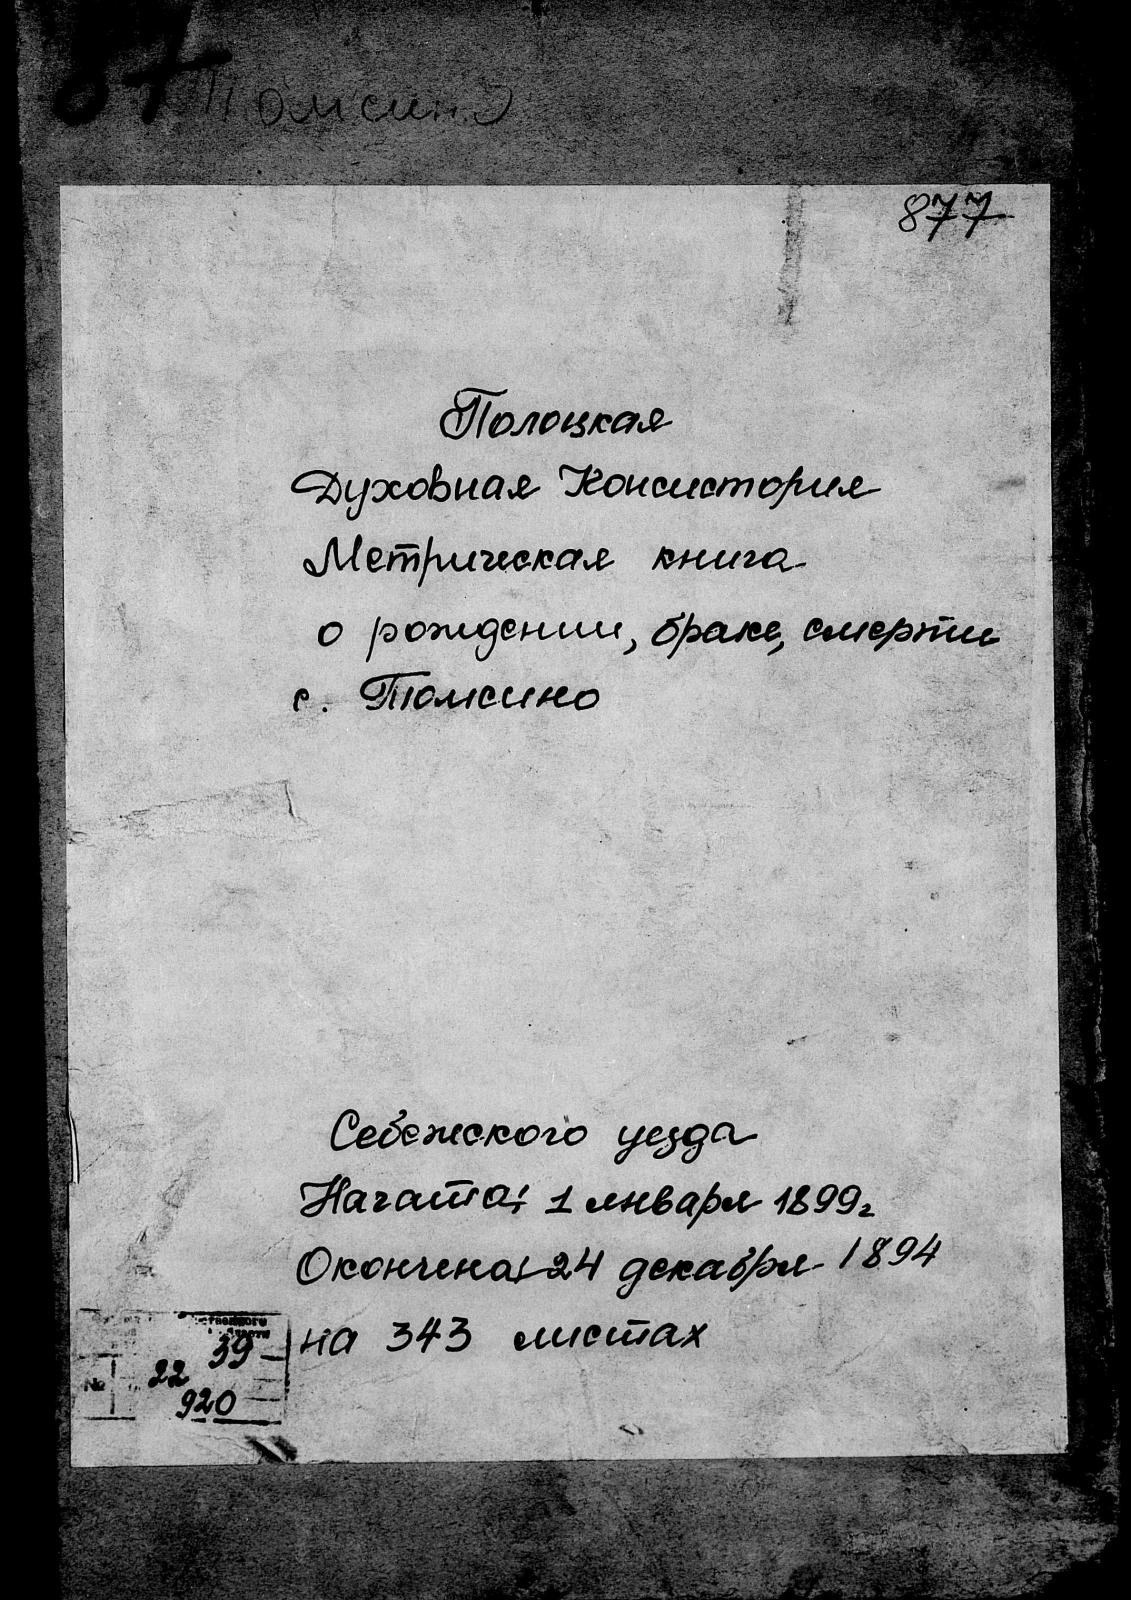 Томсино
877
Полоцкая
Духовная Консистория
Метрическая книга
о рождении, браке, смерти
с. Томсино
Себежского уезда
Начата: 1 января 1899г
Окончена: 24 декабря 1894
на 343 листах
39
№ 22
920